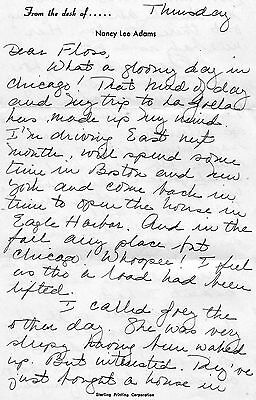 From the desk of.....
Thursday
Nancy Lee Adams
Dear Floss,
What a gloomy day in
Chicago! That kind of day
and my trip to La Jolla
has made up my mind.
I'm driving East next
month, will spend some
time in Boston and New
York and come back in
time to open the house in
Eagle Harbor. And in the
fall any place but
Chicago! Whoopee! I feel
as tho a load had been
lifted.
I called Joey the
other day. She was very
sleepy having been waked
up. But interested. They've
just bought a house in
Sterling Printing Corporation